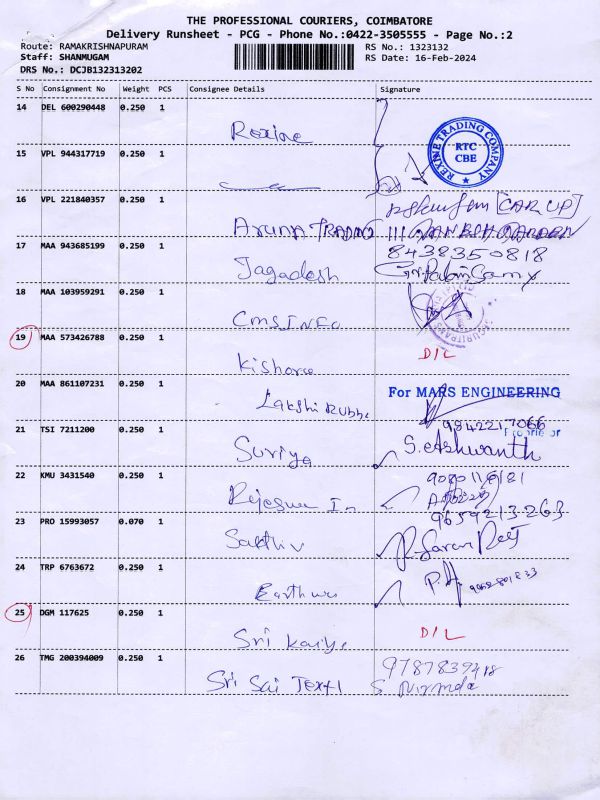 THE PROFESSIONAL COURIERS, COIMBATORE
Delivery Runsheet - PCG - Phone No.:0422-3505555 - Page No.:2
Route: RAMAKRISHNAPURAM RS No.: 1323132
Staff: SHANMUGAM RS Date: 16-Feb-2024
DRS No.: DCJB132313202
S No Consignment No Weight PCS Consignee Details Signature
14 DEL 600290448 0.250 1
Rexine
REXINE TRADING COMPANY
RTC
CBE
15 VPL 944317719 0.250 1
16 VPL 221840357 0.250 1
[CAR UP]
Aruna TRADING
17 MAA 943685199 0.250 1 8438350818
Jagadesh
18 MAA 103959291 0.250 1
CMS INFO
19 MAA 573426788 0.250 1 D/L
Kishore
20 MAA 861107231 0.250 1 For MARS ENGINEERING
Lakshi Rubbe
9842217066
21 TSI 7211200 0.250 1 S. Ashwanth
Suriya
22 KMU 3431540 0.250 1
9659213263
23 PRO 15993057 0.070 1
Sakthiv
24 TRP 6763672 0.250 1
25 DGM 117625 0.250 1 D/L
Sri
26 TMG 200394009 0.250 1
Sri Sai Text S. Nirmala